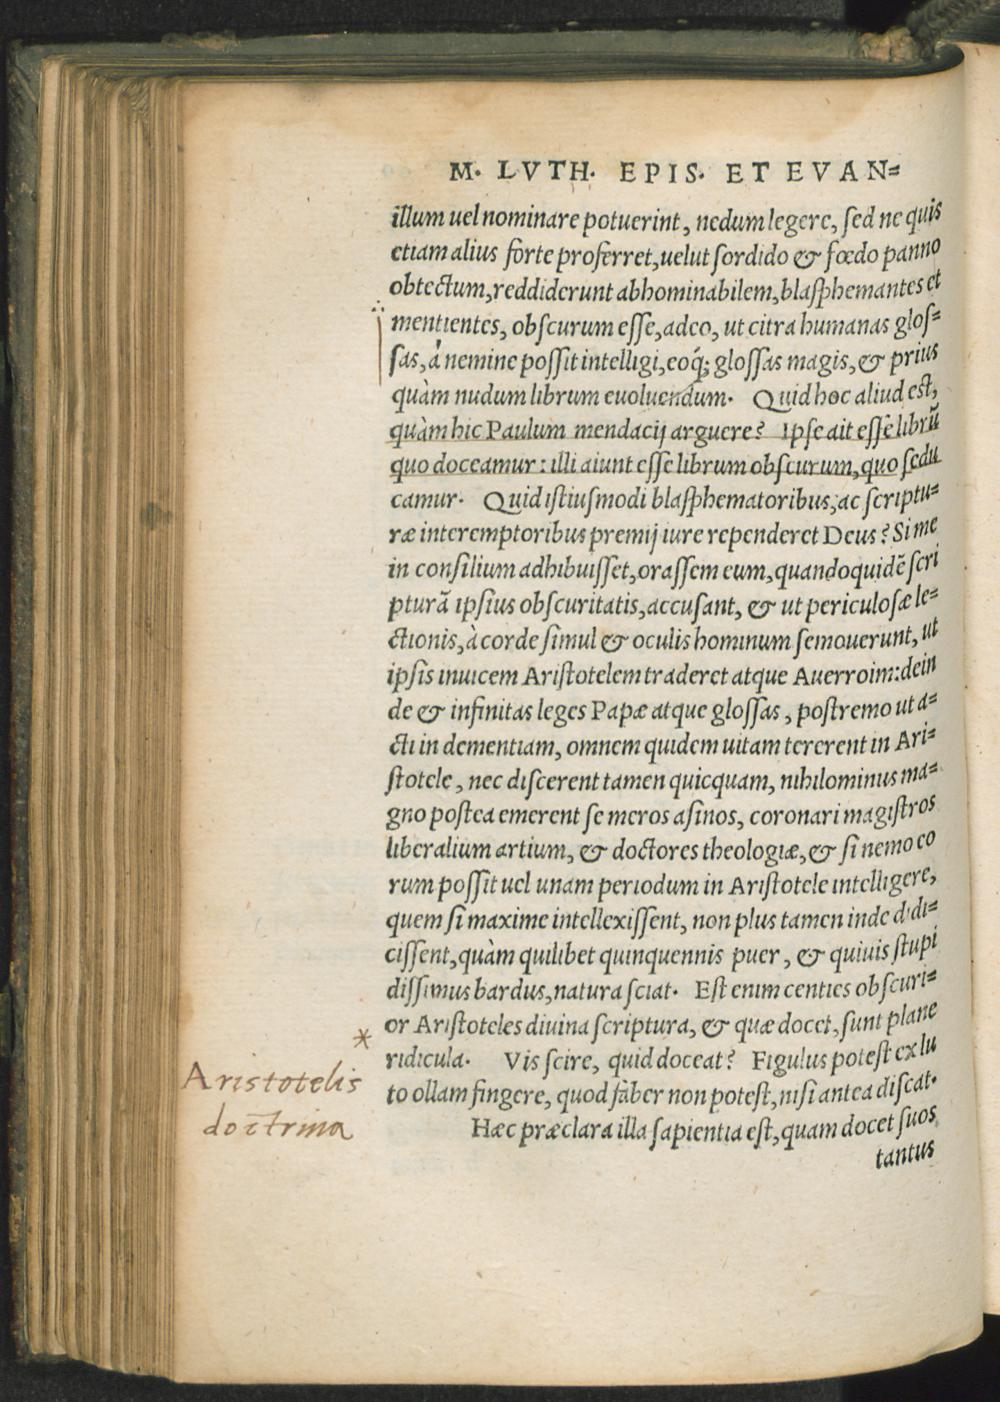 M. LVTH. EPIS. ET EVAN=
illum uel nominare potuerint, nedum legere, sed ne quis
etiam alius forte proferret, uelut sordido & fœdo panno
obtectum, reddiderunt abhominabilem, blasphemantes et
mentientes, obscurum esse, adeo, ut citra humanas glos=
sas, à nemine possit intelligi, eoq́; glossas magis, & prius
quàm nudum librum euoluendum. Quid hoc aliud est,
quàm hic Paulum mendacij arguere? Ipse ait esse librū
quo doceamur: illi aiunt esse librum obscurum, quo sedu
camur. Quid istiusmodi blasphematoribus, ac scriptu=
ræ interemptoribus premij iure rependeret Deus? Si me
in consilium adhibuisset, orassem eum, quandoquidē scri
pturā ipsius obscuritatis, accusant, & ut periculosæ le=
ctionis, à corde simul & oculis hominum semouerunt, ut
ipsis inuicem Aristotelem traderet atque Auerroim: dein
de & infinitas leges Papæ atque glossas, postremo ut a=
cti in dementiam, omnem quidem uitam tererent in Ari=
stotele, nec discerent tamen quicquam, nihilominus ma=
gno postea emerent se meros asinos, coronari magistros
liberalium artium, & doctores theologiæ, & si nemo eo
rum possit uel unam periodum in Aristotele intelligere,
quem si maxime intellexissent, non plus tamen inde didi=
cissent, quàm quilibet quinquennis puer, & quiuis stupi
dissimus bardus, natura sciat. Est enim centies obscuri=
or Aristoteles diuina scriptura, & quæ docet, sunt plane
ridicula. Vis scire, quid doceat? Figulus potest ex lu
to ollam fingere, quod faber non potest, nisi antea discat.
Hæc præclara illa sapientia est, quam docet suos
tantus
*
Aristotelis
doctrina